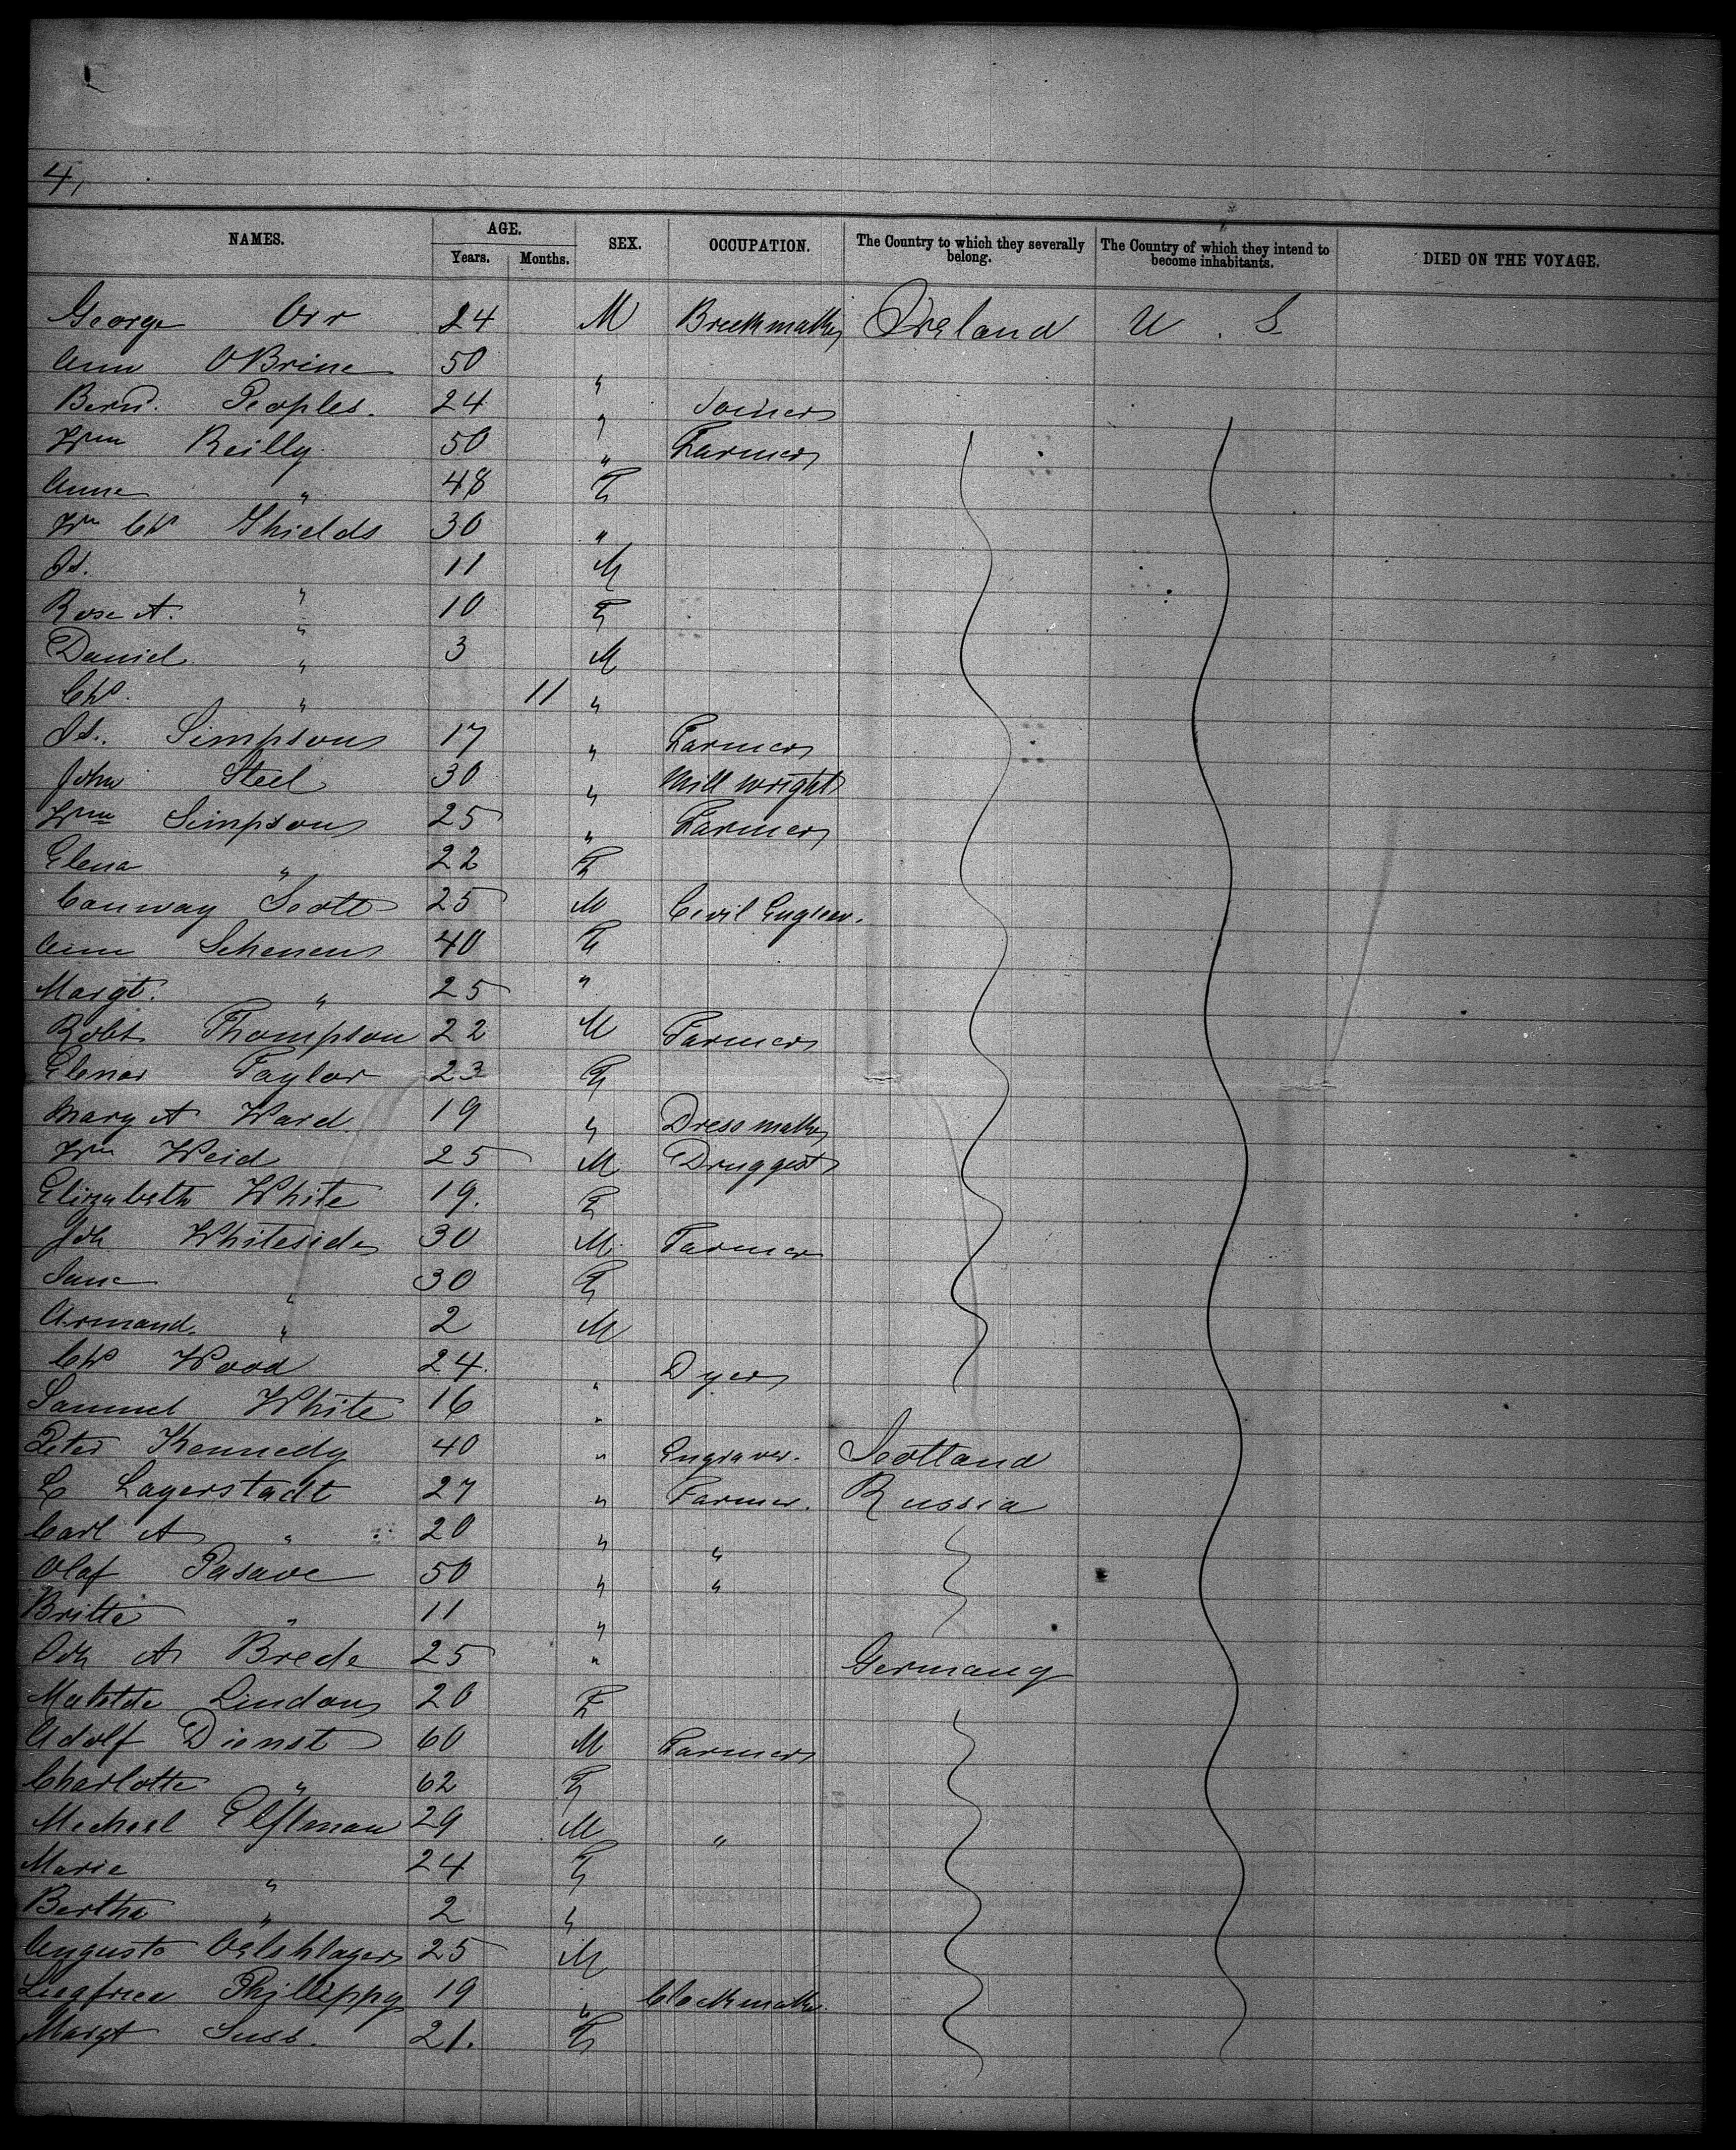 4,
NAMES. AGE. SEX. OCCUPATION. The Country to which they severally belong. The Country of which they intend to become inhabitants. DIED ON THE VOYAGE.
Years. Months.
George Orr 24 M Ireland U. S
Ann OBrine 50 "
Bernd. Peoples. 24 " Joiner
Wm Reilly 50 " Farmer
Anne " 48 F
Wm Chs Shields 30 "
Js. " 11 M
Rose A. " 10 F
Daniel " 3 M
Chs. " 11 "
Js. Simpson 17 " Farmer
John Steel 30 " Mill wright
Wm Simpson 25 " Farmer
Elena " 22 F
Conway Scott 25 M Civil Engieer.
Ann 40 F
Margt. " 25 "
Robt Thompson 22 M Farmer
Elenor Taylor 23 F
Mary A Ward 19 " Dress maker
Wm Weid 25 M Druggist
Elizabeth White 19. F
Joh Whiteside 30 M Farmer
Jane " 30 F
Armand. " 2 M
Chs Wood 24. " Dyer
Samuel White 16 "
Peter Kennedy 40 " Engraver. Scotland
C Lagerstadt 27 " Farmer. Russia
Carl A " 20 " "
Olaf Pasave 50 " "
Britte " 11 "
A Brede 25 " Germany
Matilde Lindon 20 F
Adolf Dienst 60 M Farmer
Charlotte " 62 F
Micheel 29 M "
Marie " 24 F
Bertha " 2 "
Auguste Oelshlager 25 M
Siegfried Phillippy 19 " Clockmaker.
Margt Suss. 21. F